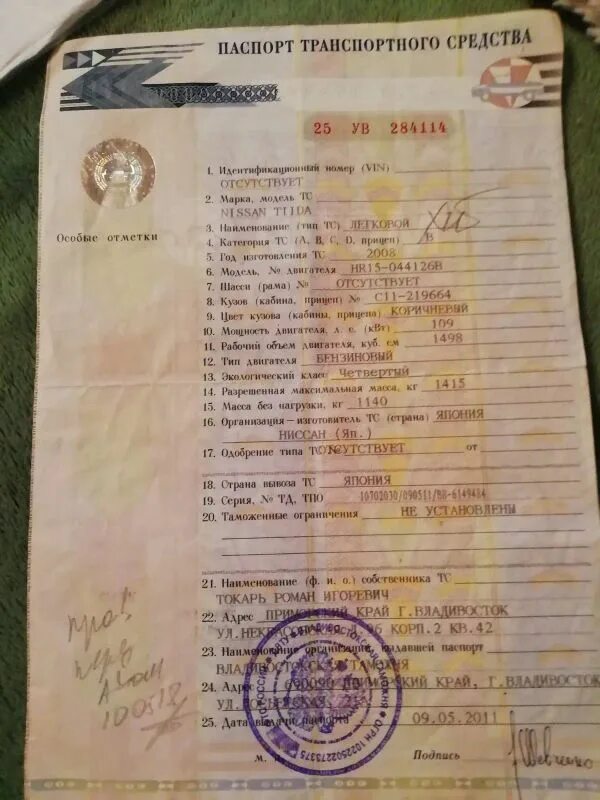 ПАСПОРТ ТРАНСПОРТНОГО СРЕДСТВА
25 УВ 284114
1. Идентификационный номер (VIN)
ОТСУТСТВУЕТ
2. Марка, модель ТС
NISSAN TIIDA
Особые отметки
3. Наименование (тип ТС) ЛЕГКОВОЙ
4. Категория ТС (А, В, С, D, прицеп) В
5. Год изготовления ТС 2008
6. Модель, № двигателя HR15-044126B
7. Шасси (рама) № ОТСУТСТВУЕТ
8. Кузов (кабина, прицеп) № C11-219664
9. Цвет кузова (кабины, прицепа) КОРИЧНЕВЫЙ
10. Мощность двигателя, л. с. (кВт) 109
11. Рабочий объем двигателя, куб. см 1498
12. Тип двигателя БЕНЗИНОВЫЙ
13. Экологический класс Четвертый
14. Разрешенная максимальная масса, кг 1415
15. Масса без нагрузки, кг 1140
16. Организация-изготовитель ТС (страна) ЯПОНИЯ
НИССАН (Яп.)
17. Одобрение типа ТС № ОТСУТСТВУЕТ от
18. Страна вывоза ТС ЯПОНИЯ
19. Серия, № ТД, ТПО 10702030/090511/ВВ-6149484
20. Таможенные ограничения НЕ УСТАНОВЛЕНЫ
21. Наименование (ф. и. о.) собственника ТС
ТОКАРЬ РОМАН ИГОРЕВИЧ
22. Адрес ПРИМОРСКИЙ КРАЙ Г.ВЛАДИВОСТОК
КОРП.2 КВ.42
23. Наименование организации, выдавшей паспорт
ВЛАДИВОСТОКСКАЯ ТАМОЖНЯ
24. Адрес 690090 ПРИМОРСКИЙ КРАЙ, Г.ВЛАДИВОСТОК
25. Дата выдачи паспорта 09.05.2011
М. П. Подпись
ОГРН 1022502275375